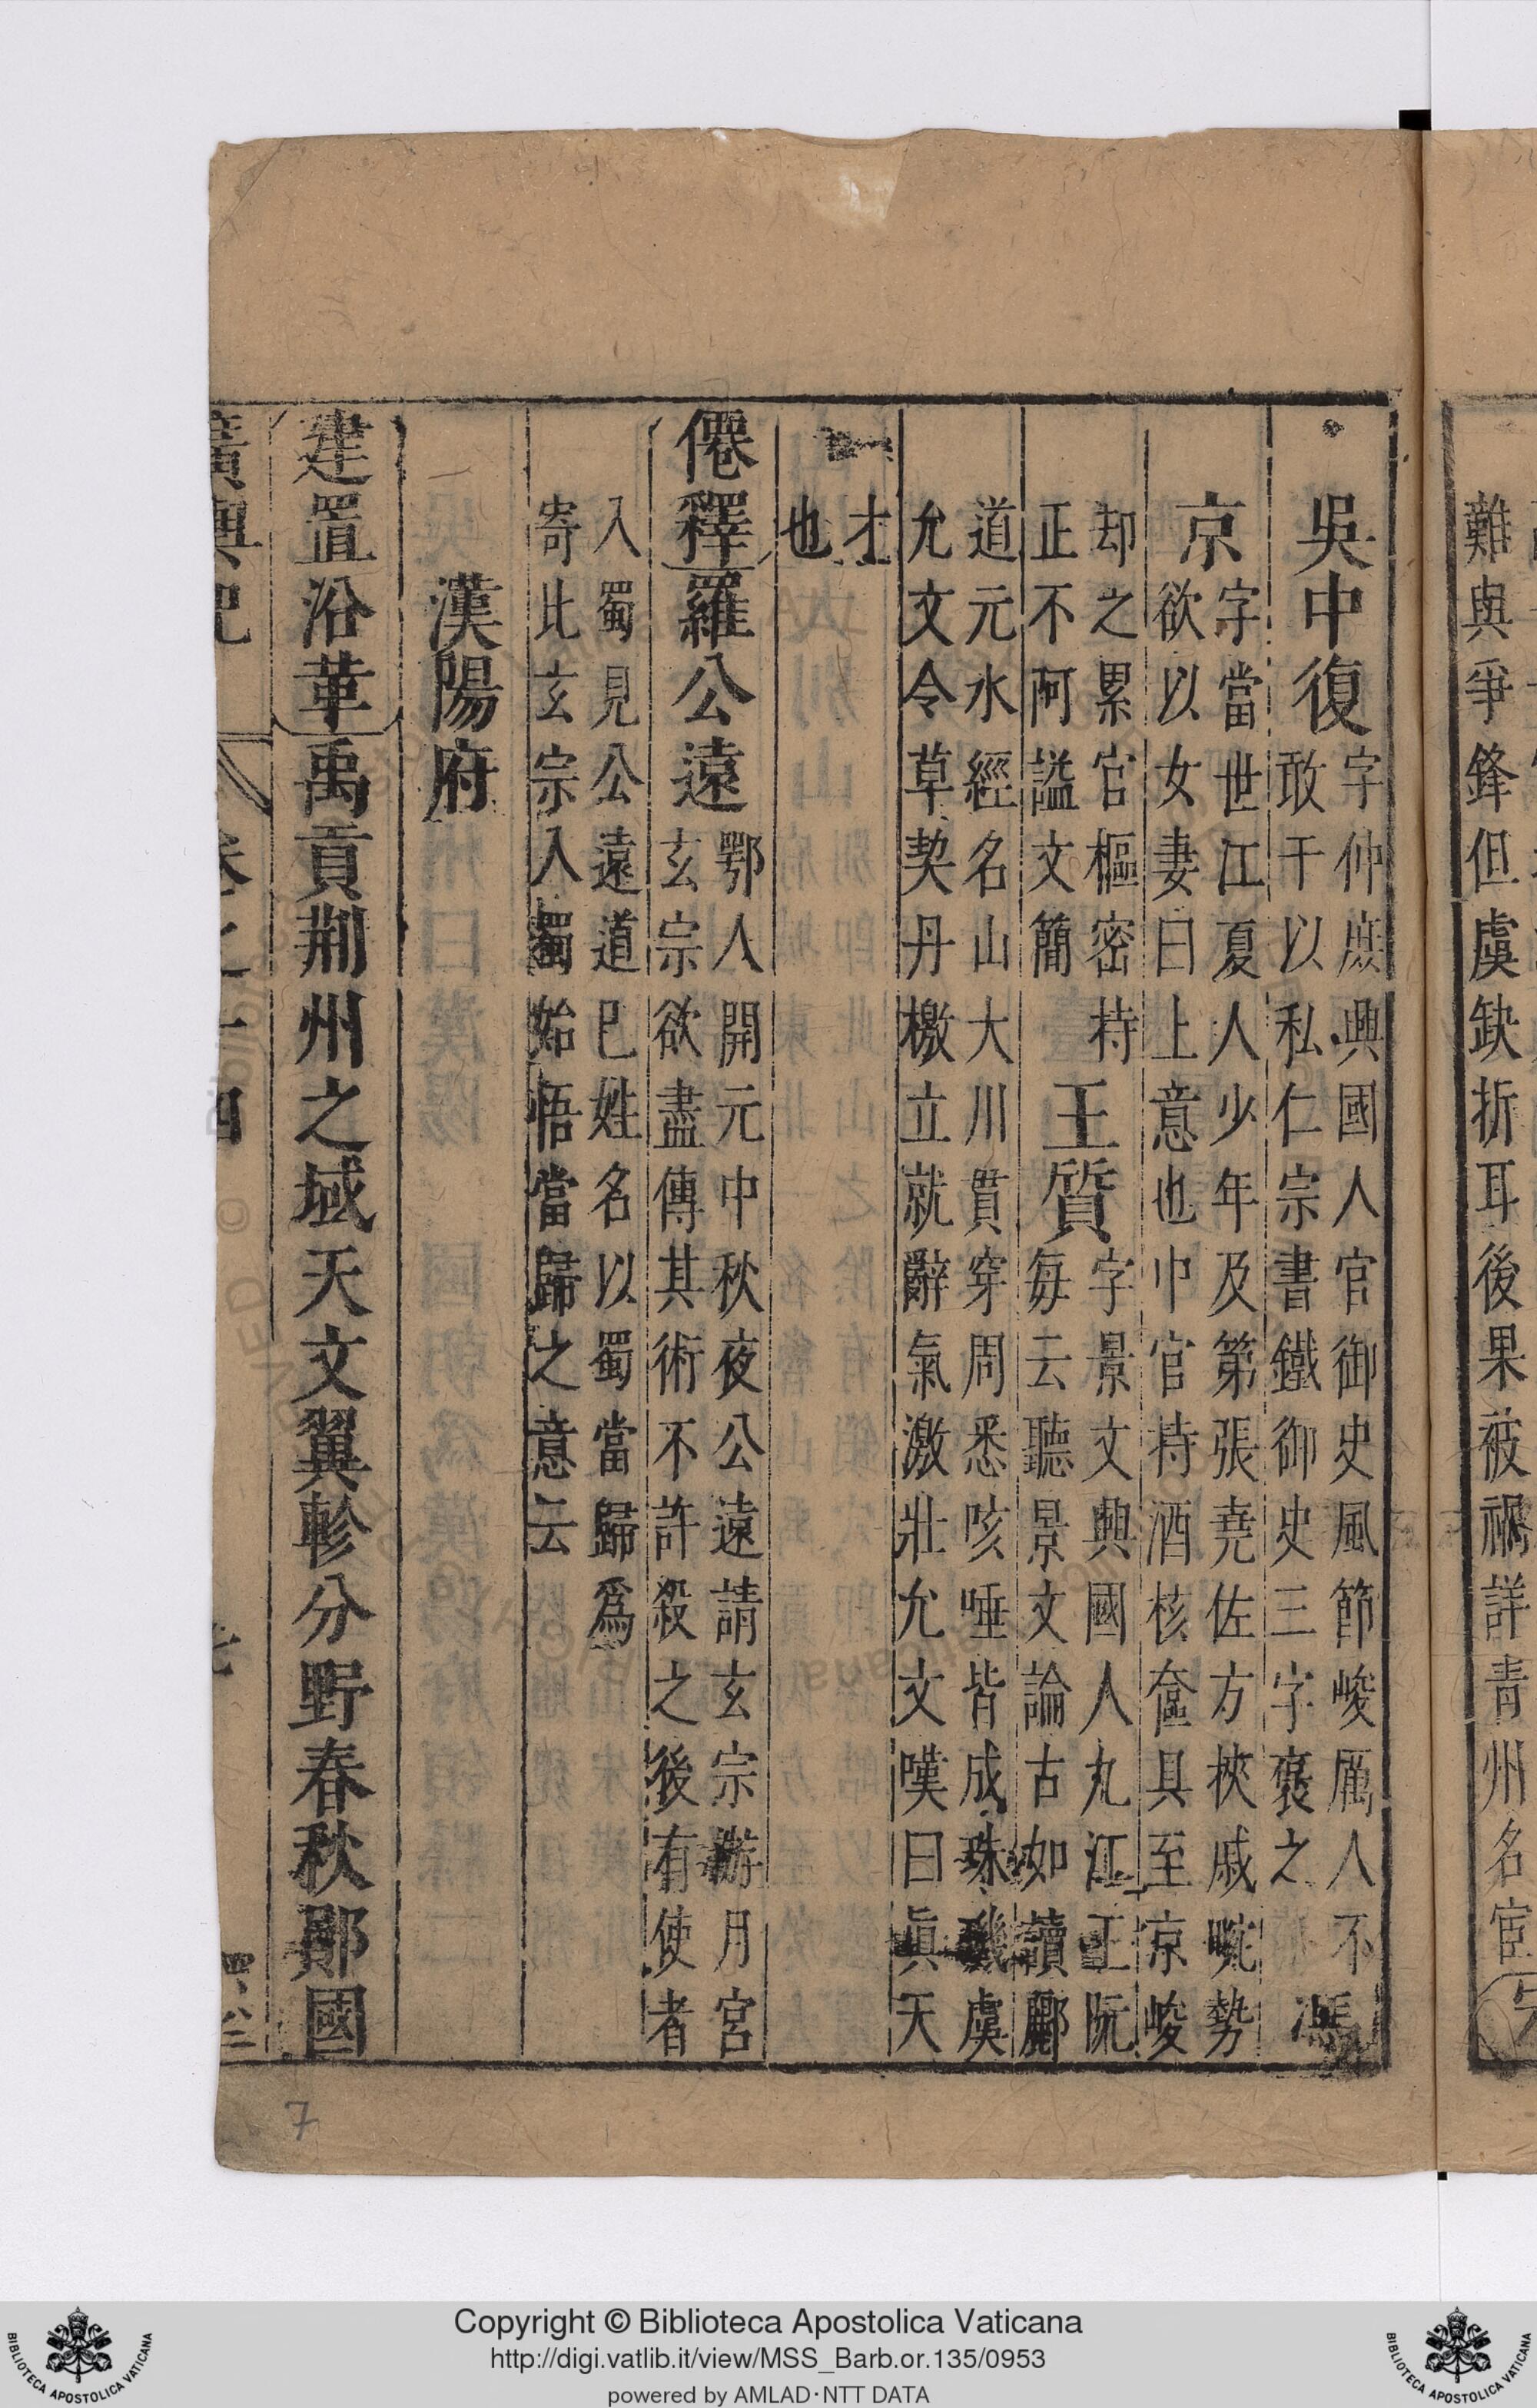 難與爭鋒但虞缺折耳後果被禍詳青州名宦
吳中復
字仲庶興國人官御史風節峻厲人不
敢干以私仁宗書鐵御史三字褒之
馮
京
字當世江夏人少年及第張堯佐方挾戚畹勢
欲以女妻曰上意也中官持酒核奩具至京峻
却之累官樞密持
正不阿謚文簡
王質
字景文興國人九江王阮
每云聽景文論古如讀酈
道元水經名山大川貫穿周悉咳唾皆成珠璣虞
允文令草契丹檄立就辭氣激壯允文嘆曰眞天
才
也
僊釋
羅公遠
鄂人開元中秋夜公遠請玄宗游月宮
玄宗欲盡傳其術不許殺之後有使者
入蜀見公遠道已姓名以蜀當歸爲
寄此玄宗入蜀始悟當歸之意云
漢陽府
建置沿革
禹貢荆州之域天文翼軫分野春秋鄖國
廣輿記
Copyright © Biblioteca Apostolica Vaticana
http://digi.vatlib.it/view/MSS_Barb.or.135/0953
powered by AMLAD·NTT DATA
BIBLIOTECA APOSTOLICA VATICANA
BIBLIOTECA APOSTOLICA VATICANA
7